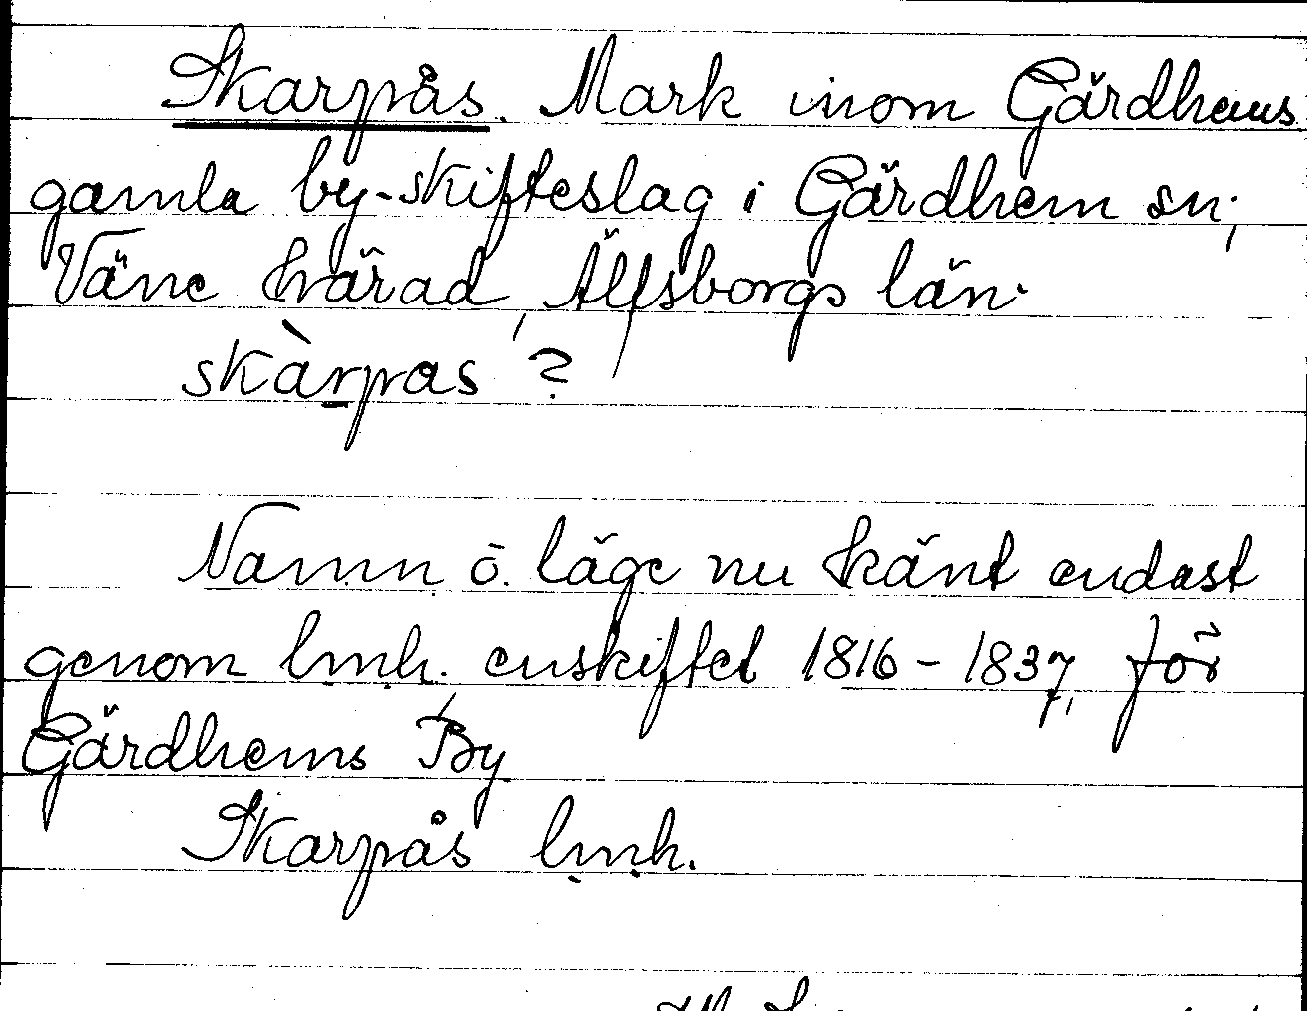 Skarpås. Mark inom Gärdhems
gamla by-skifteslag i Gärdhem sn;
Väne härad, Älfsborgs län.
skàrpas ?
Namn o. läge nu känt endast
genom lmh. enskiftet 1816 - 1837, för
Gärdhems By
Skarpås lmh.